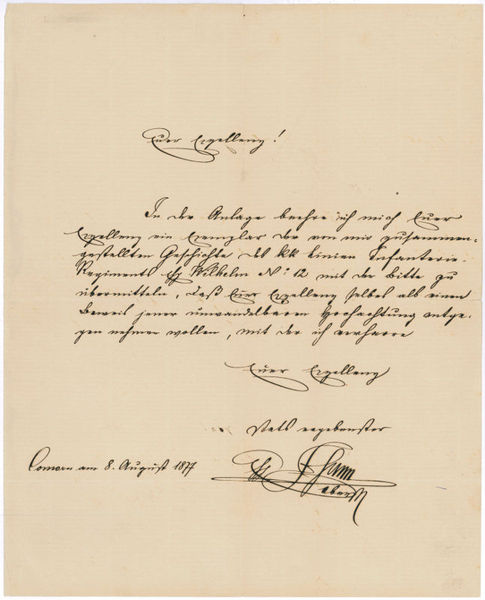 Euer Exzellenz!
In der Anlage beehre ich mich Euer
Exzellenz ein Exemplar der von mir zusammen-
gestellten Geschichte des kk Linien Infanterie-
Regiments Wilhelm No. 12 mit der Bitte zu
übermitteln, daß Euer Exzellenz selbes als einen
Beweis jener unwandelbaren Hochachtung entge-
gen nehmen wollen, mit der ich verharre
Euer Exzellenz
Stets ergebenster
Comorn am 8. August 1877
Oberst